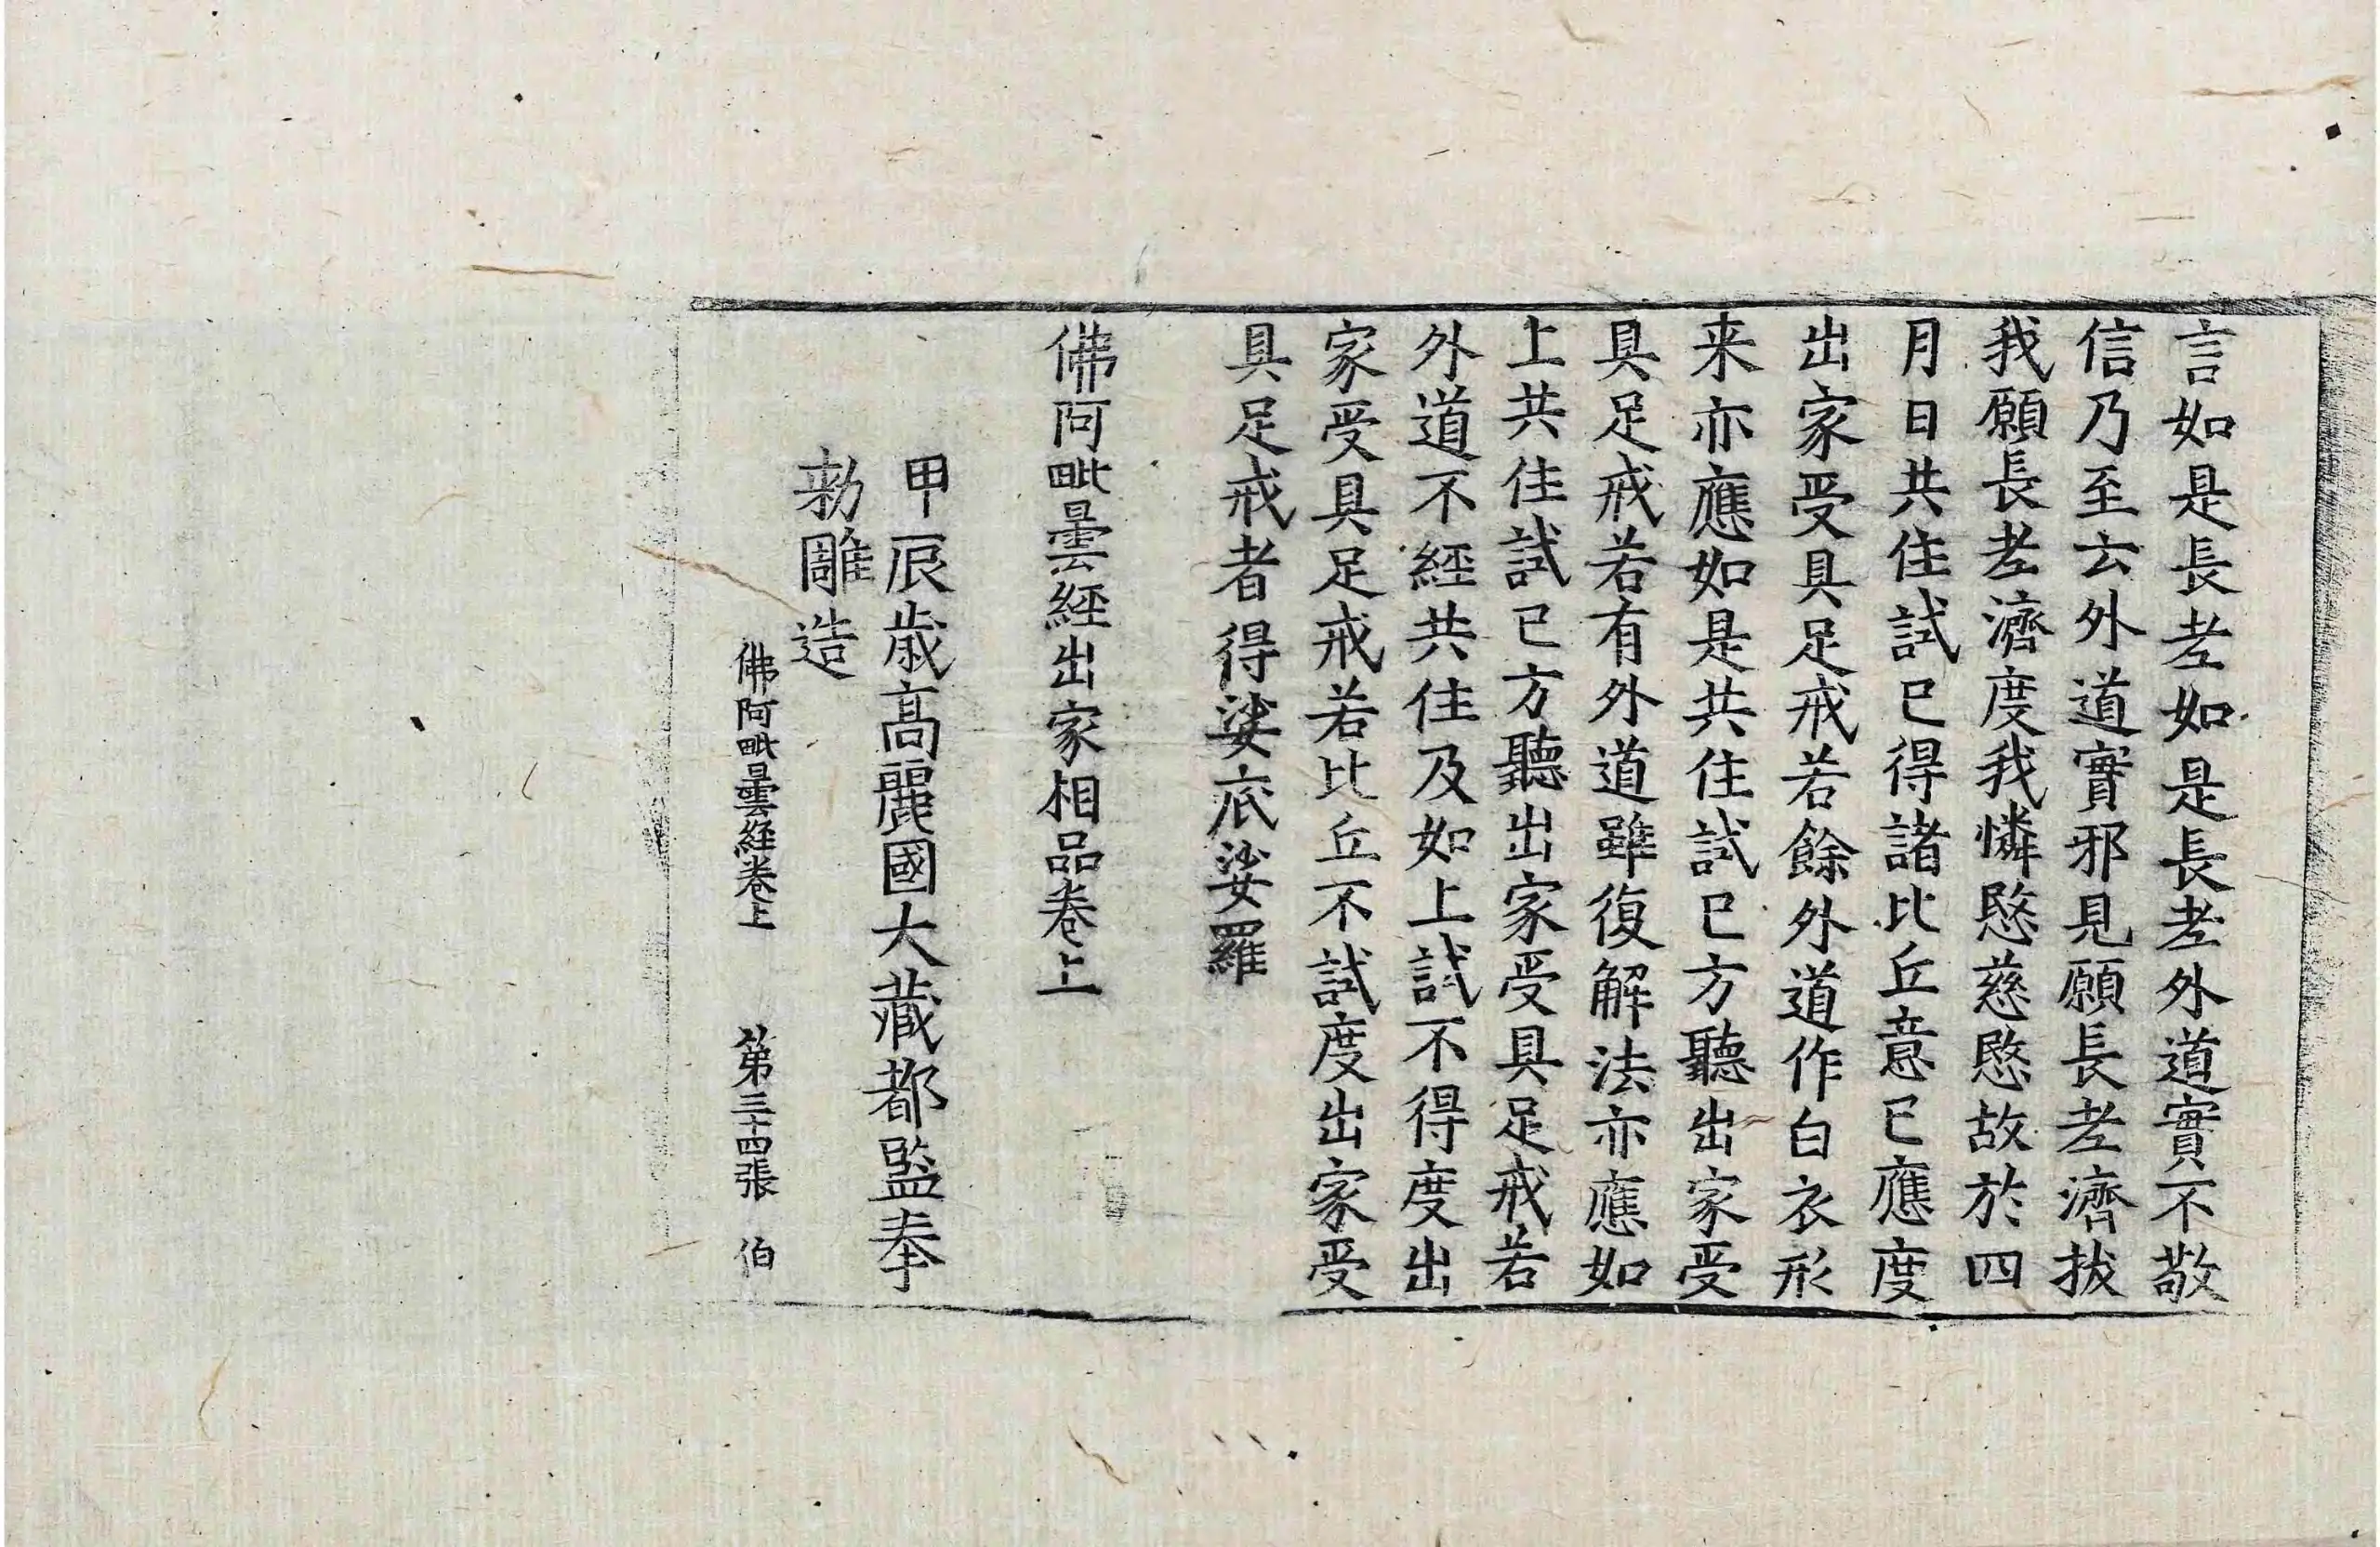 言如是長老如是長老外道實不敬
信乃至云外道實邪見願長老濟拔
我願長老濟度我憐愍慈愍故於四
月日共住試已得諸比丘意已應度
出家受具足戒若餘外道作白衣形
来亦應如是共住試已方聽出家受
具足戒若有外道雖復解法亦應如
上共住試已方聽出家受具足戒若
外道不經共住及如上試不得度出
家受具足戒若比丘不試度出家受
具足戒者得娑底娑羅
佛阿毗曇經出家相品卷上
甲辰歲高麗國大藏都監奉
勅雕造
佛阿毗曇經卷上 第三十四張 伯